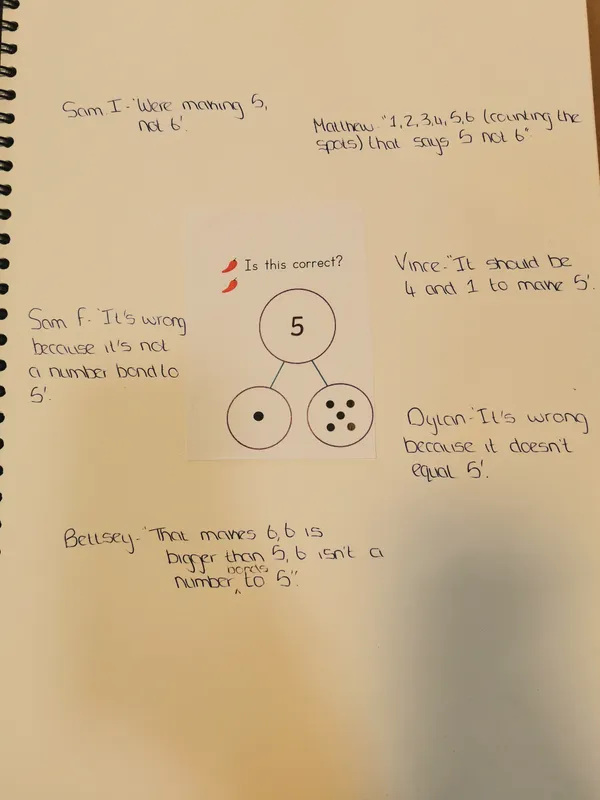 Sam I - 'Were making 5,
not 6'.
Matthew - "1,2,3,4,5,6 (counting the
spots) that says 5 not 6"
Is this correct?
5
Vince - "It should be
4 and 1 to make 5'.
Sam F - 'It's wrong
because it's not
a number bond to
5'.
Dylan - 'It's wrong
because it doesn't
equal 5'.
Bellsey - 'That makes 6, 6 is
bigger than 5, 6 isn't a
number bonds to 5".